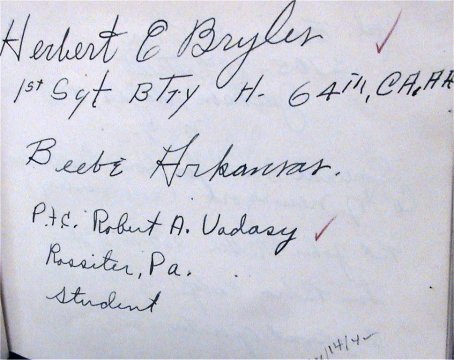 Herbert E Bryles
1st Sgt BTry H- 64TH, CA, AA
Beebe Arkansas.
P.f.c. Robert A. Vadasy
Rossiter, Pa.
Student